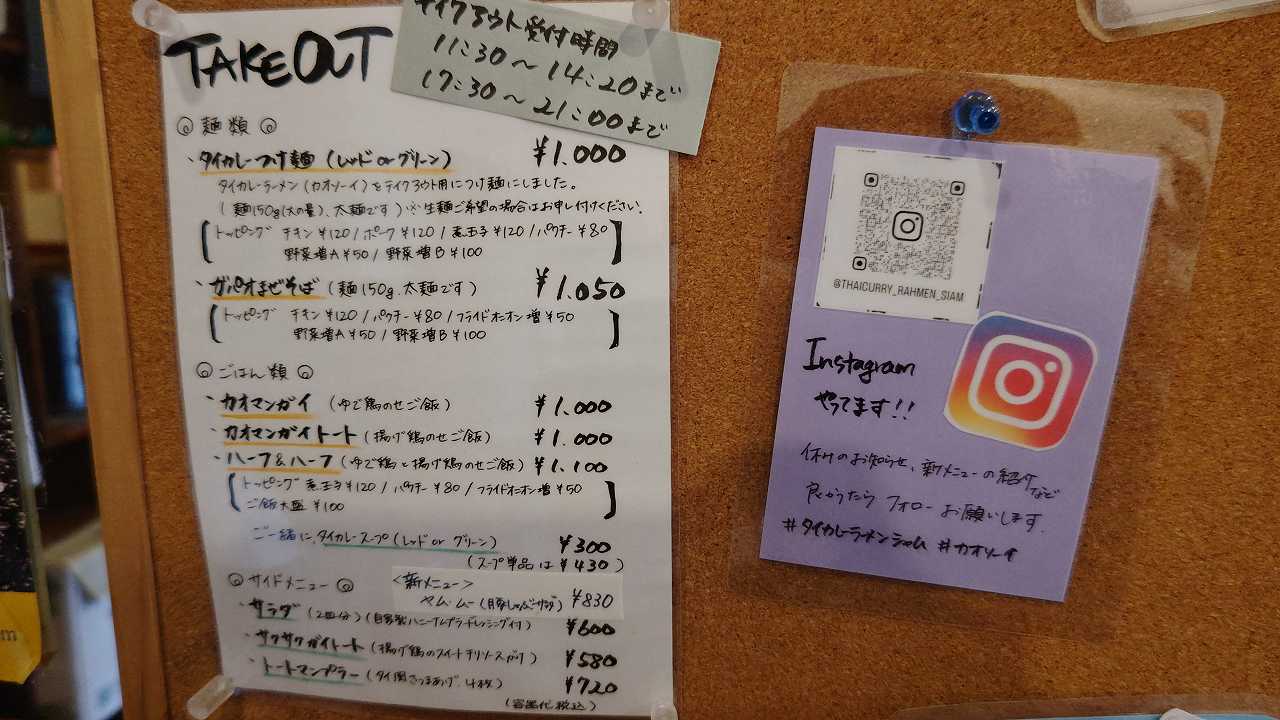 TAKEOUT
テイクアウト受付時間
11:30～14:20まで
17:30～21:00まで
◎麺類◎
・タイカレーつけ麺(レッド or グリーン) ¥1.000
タイカレーラーメン(カオソーイ)をテイクアウト用につけ麺にしました。
(麺150g(大の量)、太麺です)※生麺ご希望の場合はお申し付けください。
[トッピング チキン¥120/ポーク¥120/煮玉子¥120/パクチー¥80
野菜増A¥50/野菜増B¥100]
・ガパオまぜそば(麺150g、太麺です) ¥1.050
[トッピング チキン¥120/パクチー¥80/フライドオニオン増¥50
野菜増A¥50/野菜増B¥100]
◎ごはん類◎
・カオマンガイ(ゆで鶏のせご飯) ¥1.000
・カオマンガイトート(揚げ鶏のせご飯) ¥1.000
・ハーフ&ハーフ(ゆで鶏と揚げ鶏のせご飯) ¥1.100
[トッピング 煮玉子¥120/パクチー¥80/フライドオニオン増¥50
ご飯大盛 ¥100]
ご一緒に、タイカレースープ(レッド or グリーン) ¥300
(スープ単品は¥430)
◎サイドメニュー◎
<新メニュー>
ヤム・ムー(豚しゃぶサラダ) ¥830
・サラダ(2皿分)(自家製ハニーナムプラードレッシング付) ¥600
・サクサクガイトート(揚げ鶏のスイートチリソースがけ) ¥580
・トートマンプラー(タイ風さつまあげ、4枚) ¥720
(容器代税込)
@THAICURRY_RAHMEN_SIAM
Instagram
やってます!!
休みのお知らせ、新メニューの紹介など
良かったら フォロー お願いします.
#タイカレーラーメンシャム #カオソーイ